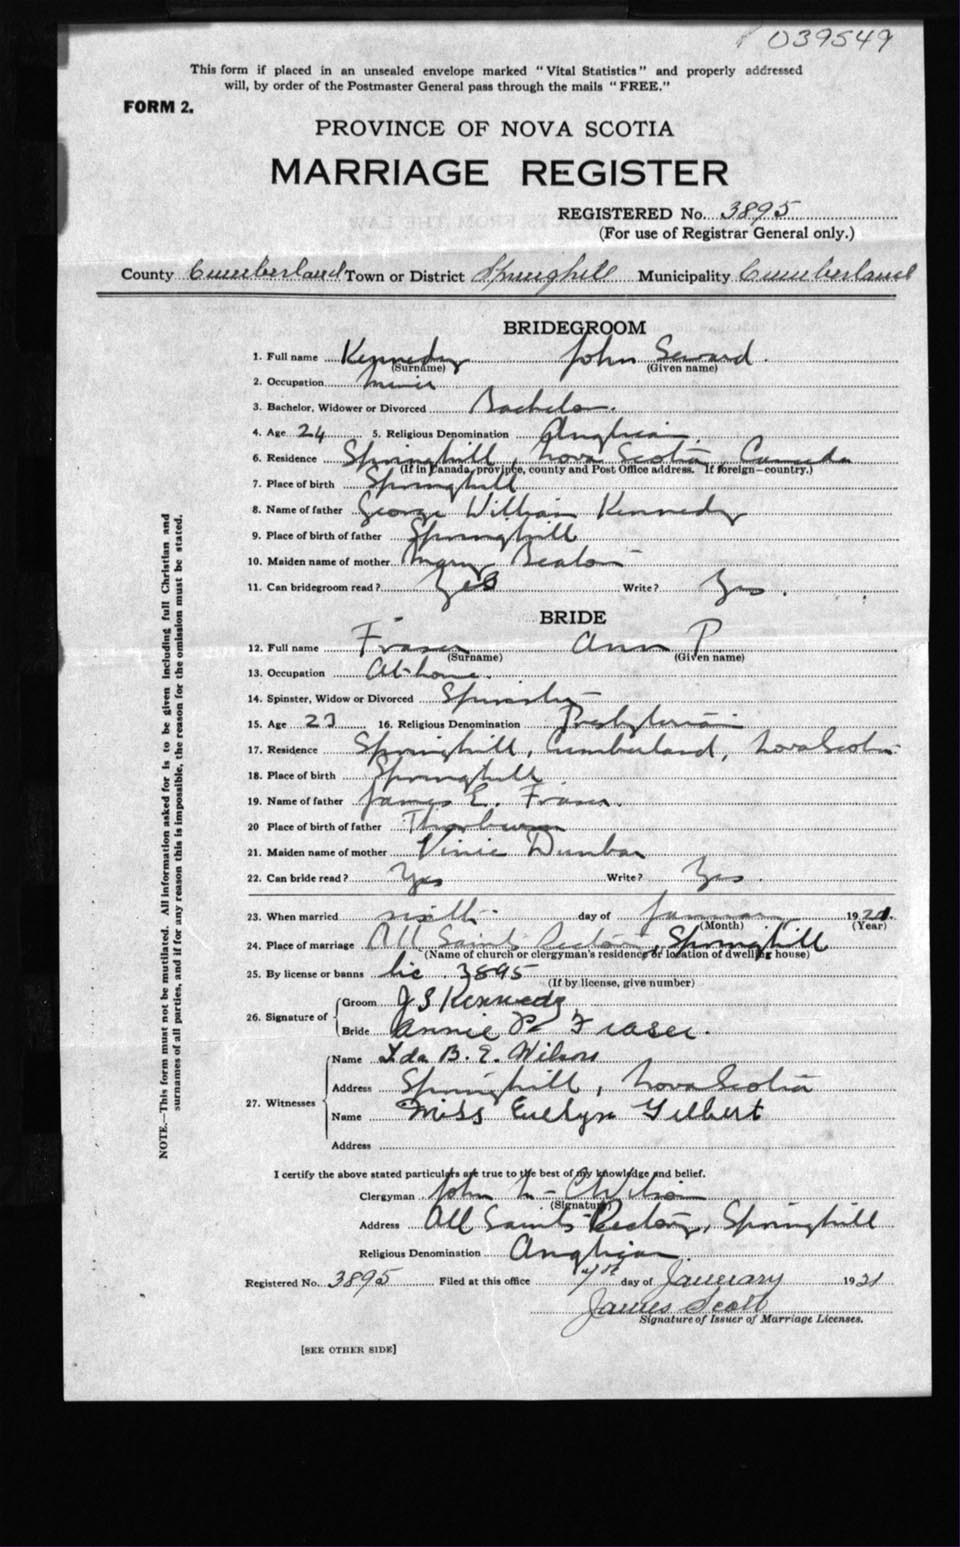 039549
This form if placed in an unsealed envelope marked "Vital Statistics" and properly addressed
will, by order of the Postmaster General pass through the mails "FREE."
FORM 2.
PROVINCE OF NOVA SCOTIA
MARRIAGE REGISTER
REGISTERED No. 3895
(For use of Registrar General only.)
County Cumberland Town or District Springhill Municipality Cumberland
BRIDEGROOM
1. Full name Kennedy John Seward
(Surname) (Given name)
2. Occupation miner
3. Bachelor, Widower or Divorced Bachelor.
4. Age 24 5. Religious Denomination Anglican
6. Residence Springhill, Nova Scotia, Canada
(If in Canada, province, county and Post Office address. If foreign—country.)
7. Place of birth Springhill
8. Name of father George William Kennedy
9. Place of birth of father Springhill
10. Maiden name of mother Mary Beaton
11. Can bridegroom read? Yes Write? Yes.
BRIDE
12. Full name Fraser Ann P.
(Surname) (Given name)
13. Occupation At home.
14. Spinster, Widow or Divorced Spinster
15. Age 23 16. Religious Denomination Presbyterian
17. Residence Springhill, Cumberland, Nova Scotia
18. Place of birth Springhill
19. Name of father James E. Fraser.
20 Place of birth of father Thorburn
21. Maiden name of mother Vinie Dunbar
22. Can bride read? Yes Write? Yes.
23. When married sixth day of January 1921.
(Month) (Year)
24. Place of marriage All Saints Rectory, Springhill
(Name of church or clergyman's residence or location of dwelling house)
25. By license or banns lic 3895
(If by license, give number)
26. Signature of Groom J S Kennedy
Bride Annie P Fraser.
27. Witnesses Name Ida B. E. Wilson
Address Springhill, Nova Scotia
Name Miss Evelyn Gilbert
Address
I certify the above stated particulars are true to the best of my knowledge and belief.
Clergyman John Wilson
(Signature)
Address All Saints Rectory, Springhill
Religious Denomination Anglican
Registered No. 3895 Filed at this office 7th day of January 1921
James Scott
Signature of Issuer of Marriage Licenses.
[SEE OTHER SIDE]
NOTE.—This form must not be mutilated. All information asked for is to be given including full Christian and
surnames of all parties, and if for any reason this is impossible, the reason for the omission must be stated.